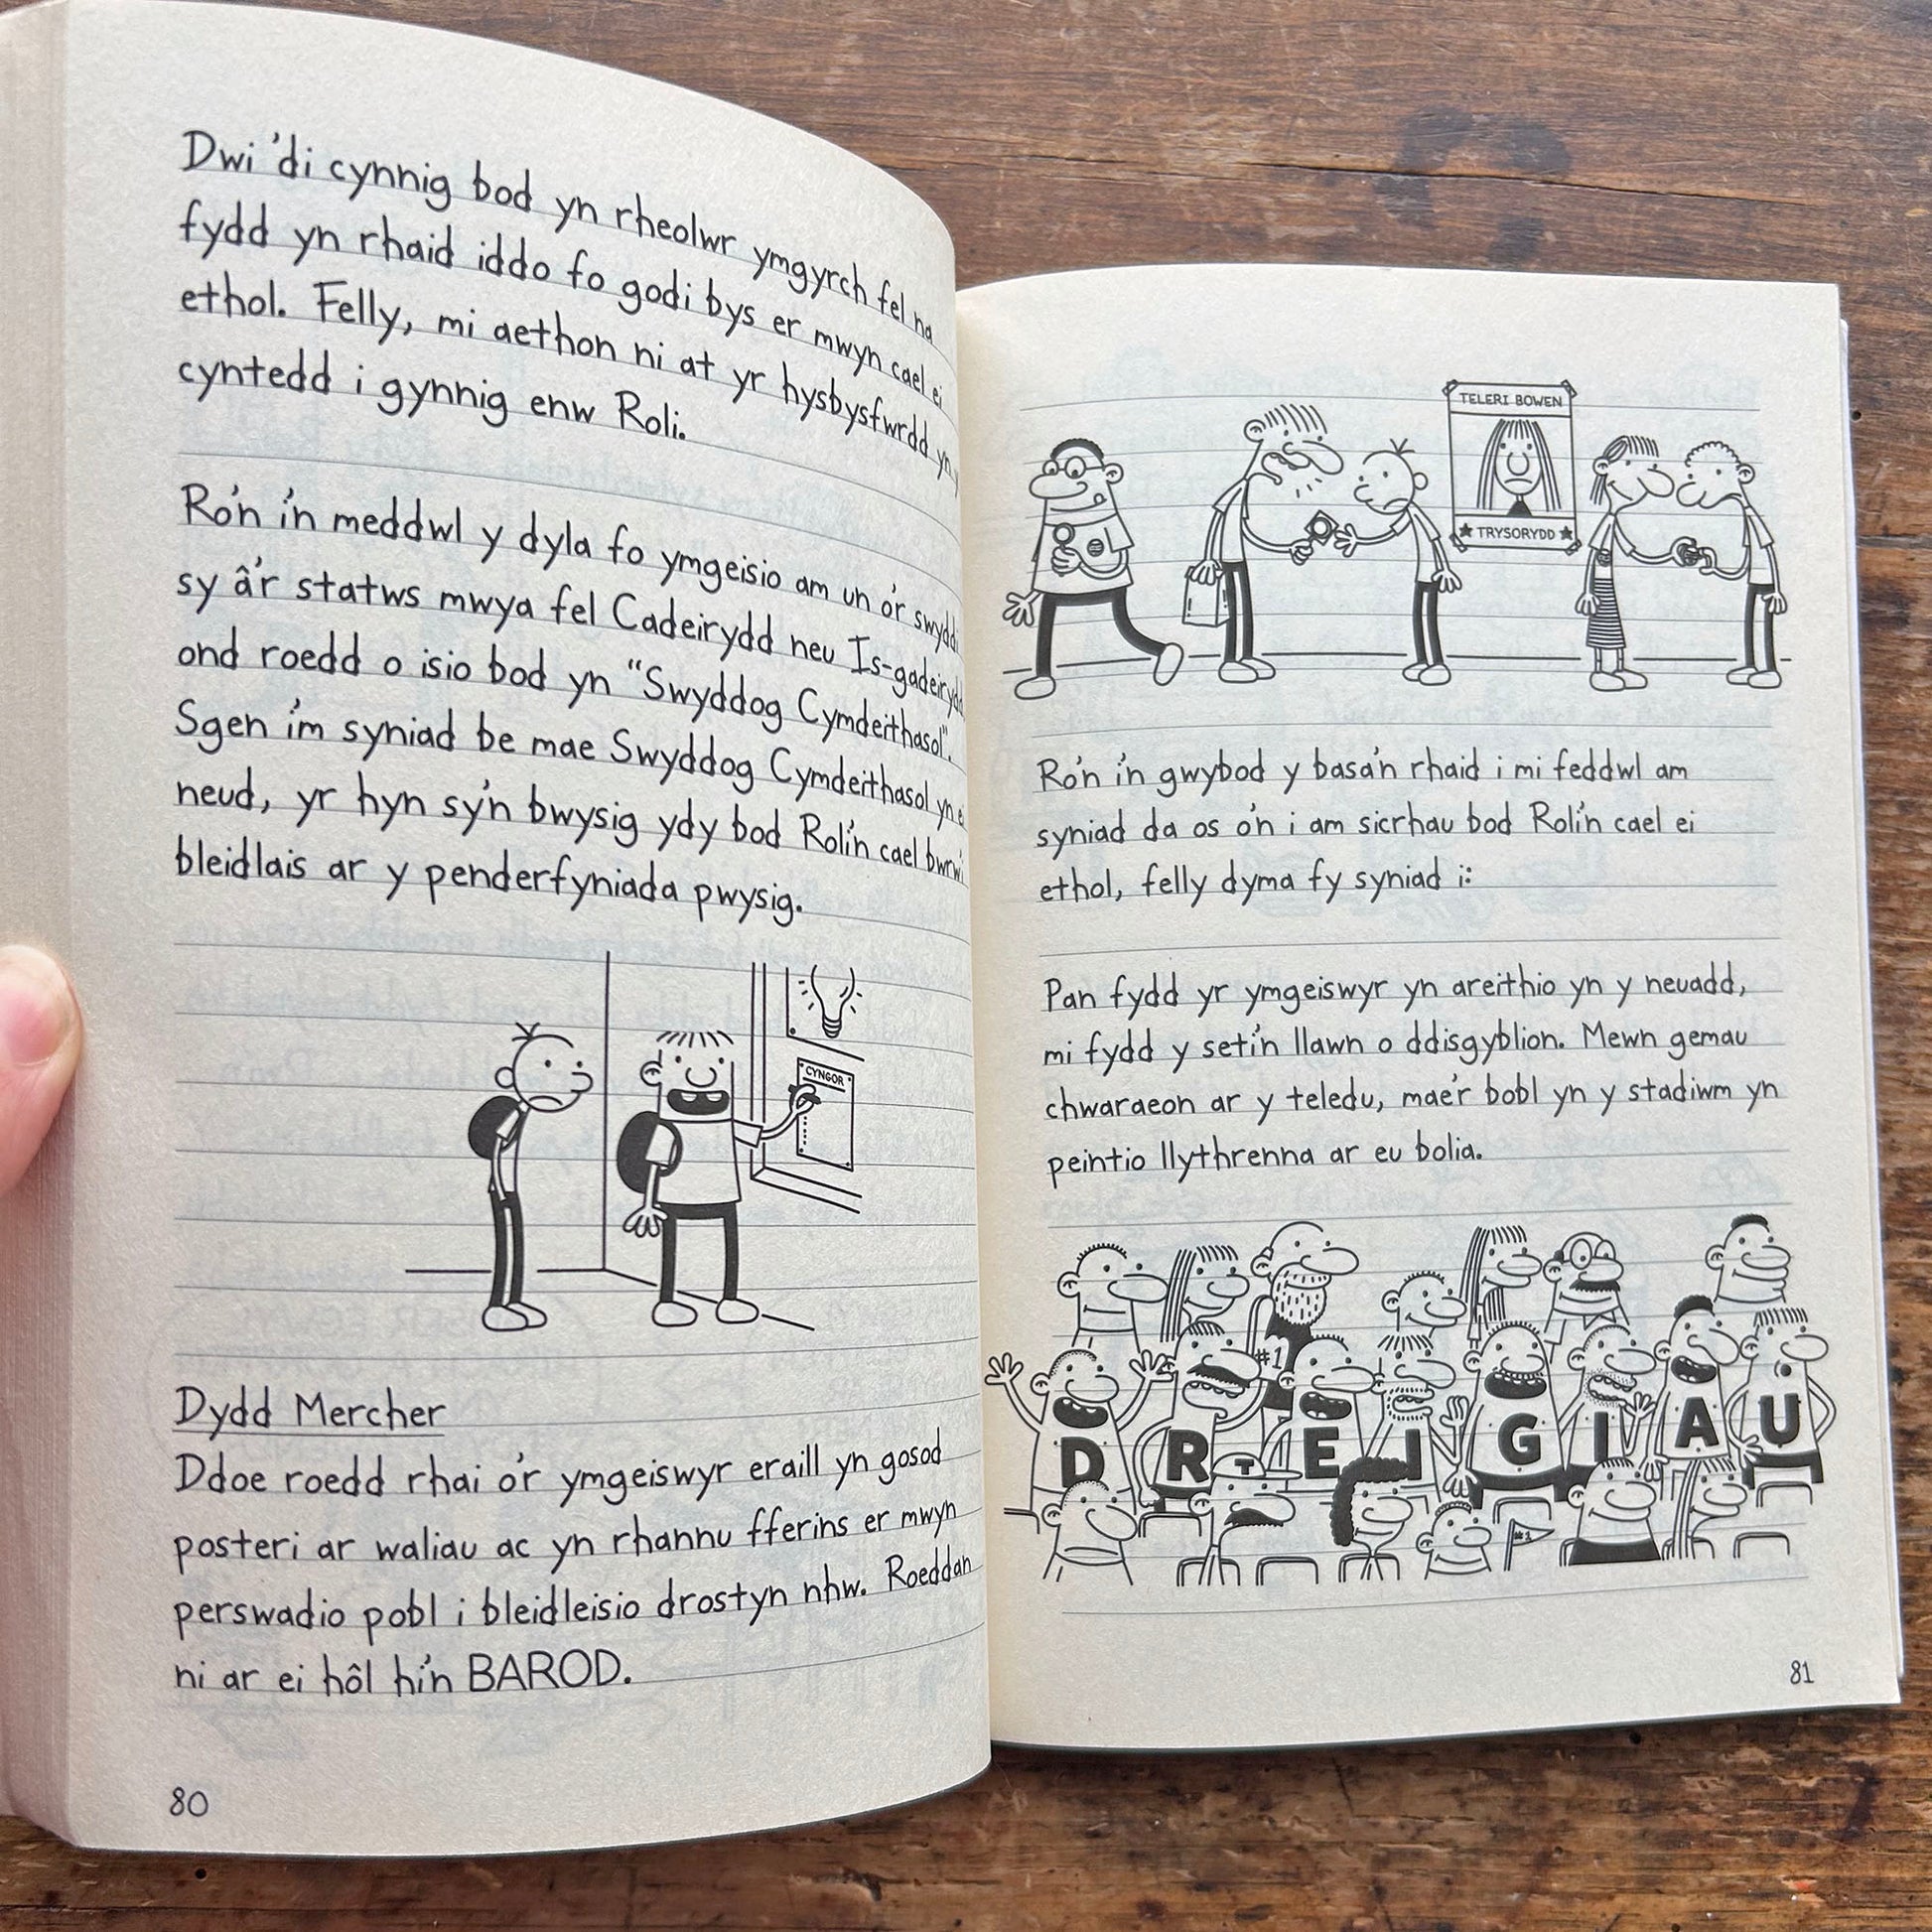 Dwi 'di cynnig bod yn rheolwr ymgyrch fel na
fydd yn rhaid iddo fo godi bys er mwyn cael ei
ethol. Felly, mi aethon ni at yr hysbysfwrdd yn
cyntedd i gynnig enw Roli.
Ro'n i'n meddwl y dyla fo ymgeisio am un o'r
sy â'r statws mwya fel Cadeirydd neu Is-gadeirydd
ond roedd o isio bod yn "Swyddog Cymdeithasol".
Sgen i'm syniad be mae Swyddog Cymdeithasol yn
neud, yr hyn sy'n bwysig ydy bod Roli'n cael bwrw'i
bleidlais ar y penderfyniada pwysig.
CYNGOR
Dydd Mercher
Ddoe roedd rhai o'r ymgeiswyr eraill yn gosod
posteri ar waliau ac yn rhannu fferins er mwyn
perswadio pobl i bleidleisio drostyn nhw. Roeddan
ni ar ei hôl hi'n BAROD.
80
TELERI BOWEN
TRYSORYDD
Ro'n i'n gwybod y basa'n rhaid i mi feddwl am
syniad da os o'n i am sicrhau bod Roli'n cael ei
ethol, felly dyma fy syniad i:
Pan fydd yr ymgeiswyr yn areithio yn y neuadd,
mi fydd y seti'n llawn o ddisgyblion. Mewn gemau
chwaraeon ar y teledu, mae'r bobl yn y stadiwm yn
peintio llythrenna ar eu bolia.
#1
D R E I G I A U
T
#1
81